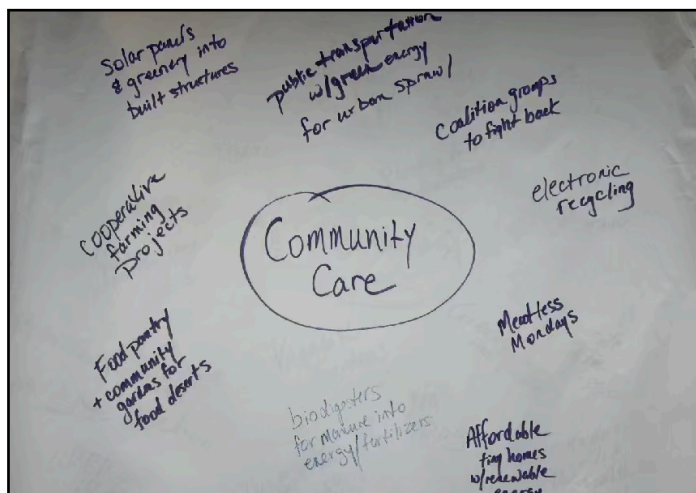 Solar panels
& greenery into
built structures
public transportation
w/green energy
for urban sprawl
Coalition groups
to fight back
electronic
recycling
Cooperative
farming
projects
Community
Care
Meatless
Mondays
Food pantry
+ community
gardens for
food deserts
biodigesters
for manure into
energy/fertilizers
Affordable
tiny homes
w/renewable
energy